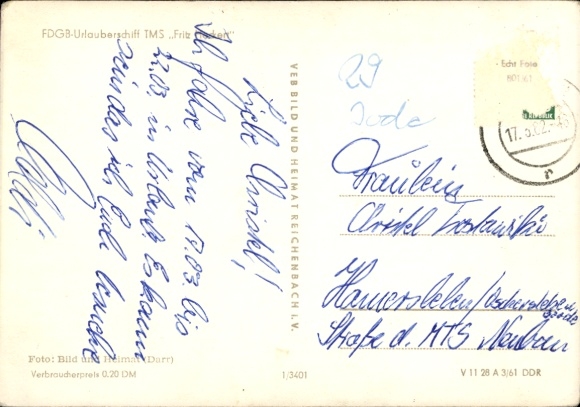 FDGB-Urlauberschiff TMS „Fritz Heckert"
Liebe Christel!
Ich fahre vom 17.03. bis
22.03. in Urlaub. Es kann
sein das ich Euch besuche
VEB BILD UND HEIMAT REICHENBACH I. V.
Foto: Bild und Heimat (Darr)
Verbraucherpreis 0,20 DM
1/3401
- Echt Foto
17.3.62
Fräulein
Christel
Hamersleben/Oschersleben
Bode
Straße d. MTS Neubau
V 11 28 A 3/61 DDR
29